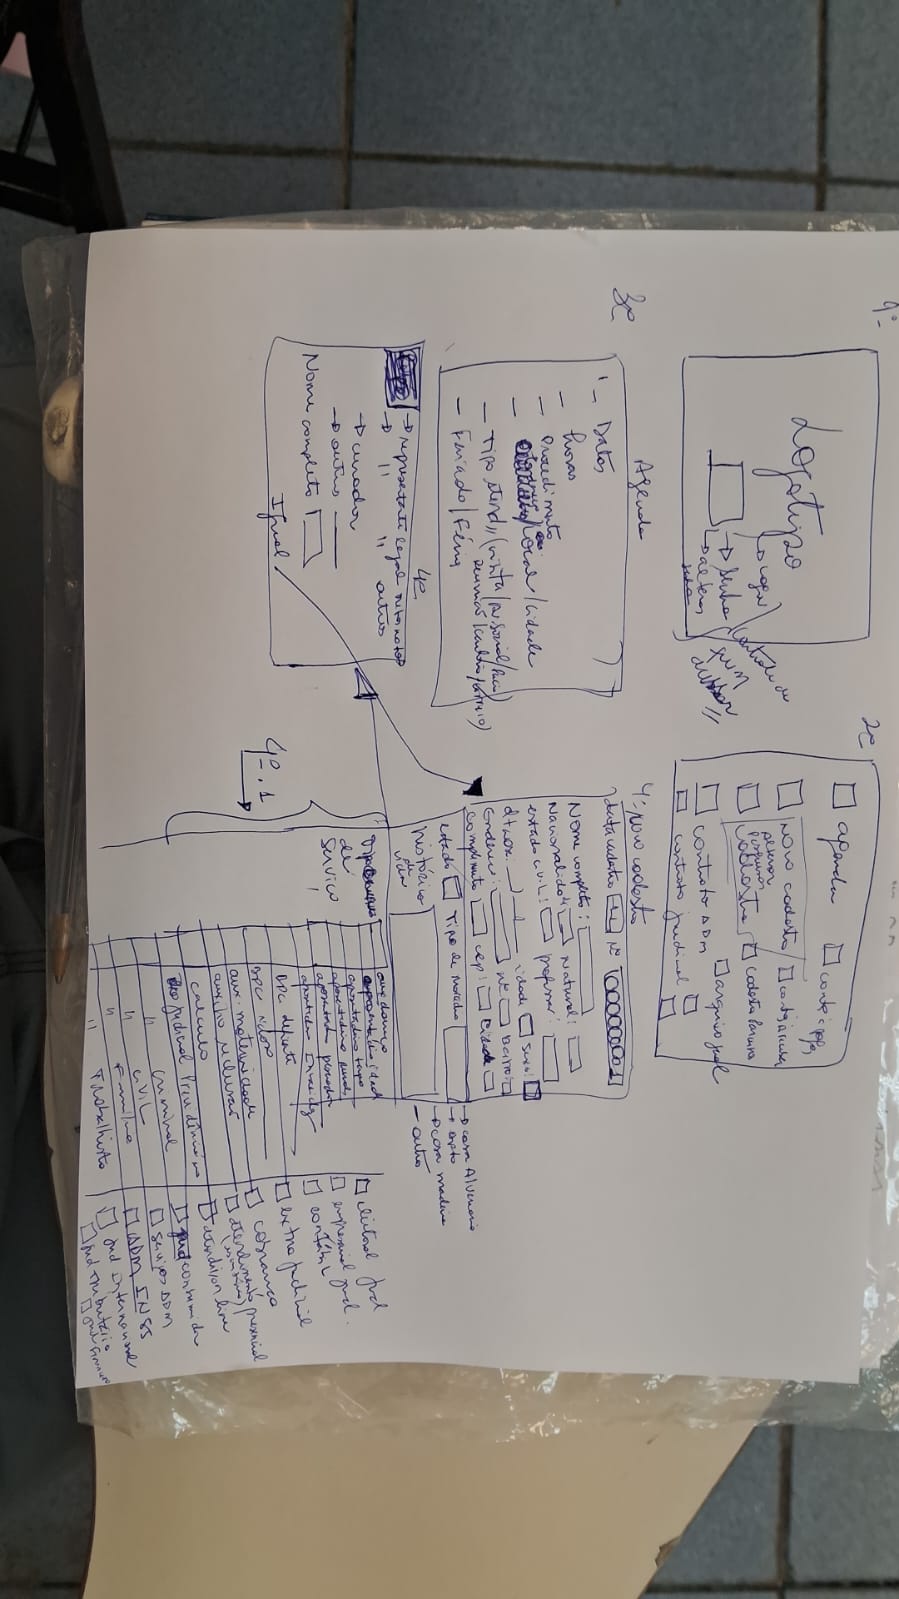 1º
Logotipo
Logar
Senha
alterar
senha
controle de
quem
acessar
2º
agenda
conta a pagar
novo cadastro
alterar
pesquisar
cadastro
conta a receber
cadastro Parceiro
contrato ADM
arquivo
contrato judicial
3º
Agenda
1 - Datas
- horas
- Procedimento
- /Local/cidade
- Tipo atend
Reunião/
- Feriado/Féria
4º
representante legal
" " outros
curador
outros
Nome completo
Igual
4º novo cadastro
data cadastro Nº 000000001
Nome completo:
Nacionalidade Natural:
estado civil: profissão:
dt nasc: idade sexo:
Endereço: nº Bairro:
complemento cep: Cidade
estado Tipo de Moradia
casa Alvenaria
apto
casa madeira
outro
histórico
de
vida
4º.1
Tipo
de
Serviço
aux. doença
aposentadoria idade
aposentadoria tempo
aposentadoria rural
aposentadoria pescador
aposentadoria
BPC deficiente
BPC idoso
aux. maternidade
auxílio reclusão
calculo
judicial Previdenciário
" criminal
" civil
" Familia
" Trabalhista
eleitoral jud
empresarial jud.
contábil jud.
extra judicial
cobrança
atendimento presencial
(escritório)
atend. on line
jud consumidor
serviços ADM
ADM INSS
jud internacional
jud Tributário